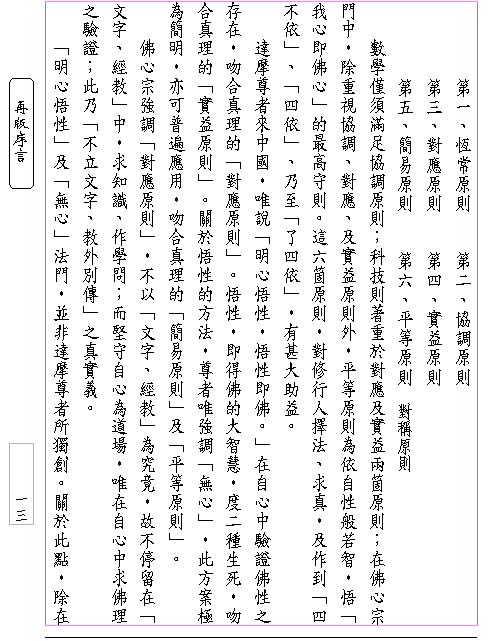 第一、恆常原則　　第二、協調原則
第三、對應原則　　第四、實益原則
第五、簡易原則　　第六、平等原則　對稱原則
數學僅須滿足協調原則；科技則著重於對應及實益兩箇原則；在佛心宗
門中，除重視協調、對應、及實益原則外，平等原則為依自性般若智，悟「
我心即佛心」的最高守則。這六箇原則，對修行人擇法、求真，及作到「四
不依」、「四依」、乃至「了四依」，有甚大助益。
達摩尊者來中國，唯說「明心悟性，悟性即佛。」在自心中驗證佛性之
存在，吻合真理的「對應原則」。悟性，即得佛的大智慧，度二種生死，吻
合真理的「實益原則」。關於悟性的方法，尊者唯強調「無心」，此方案極
為簡明，亦可普遍應用，吻合真理的「簡易原則」及「平等原則」。
佛心宗強調「對應原則」，不以「文字、經教」為究竟，故不停留在「
文字、經教」中，求知識、作學問；而堅守自心為道場，唯在自心中求佛理
之驗證；此乃「不立文字、教外別傳」之真實義。
「明心悟性」及「無心」法門，並非達摩尊者所獨創。關於此點，除在
再版序言
一三